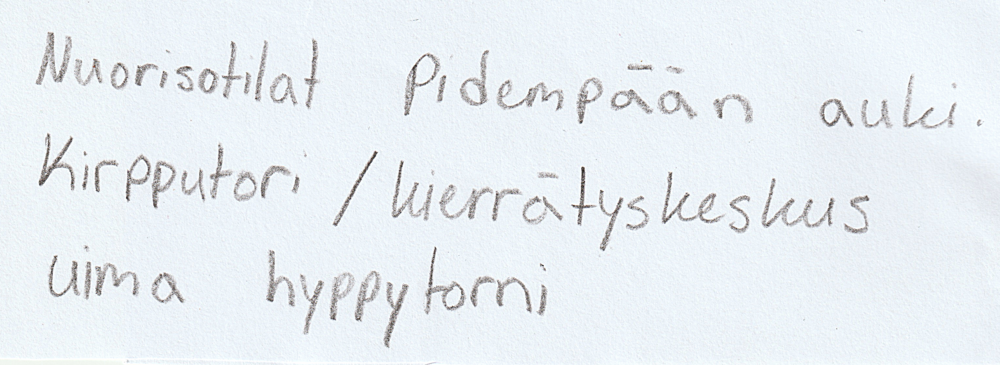 Nuorisotilat Pidempään auki.
Kirpputori / kierrätyskeskus
uima hyppytorni